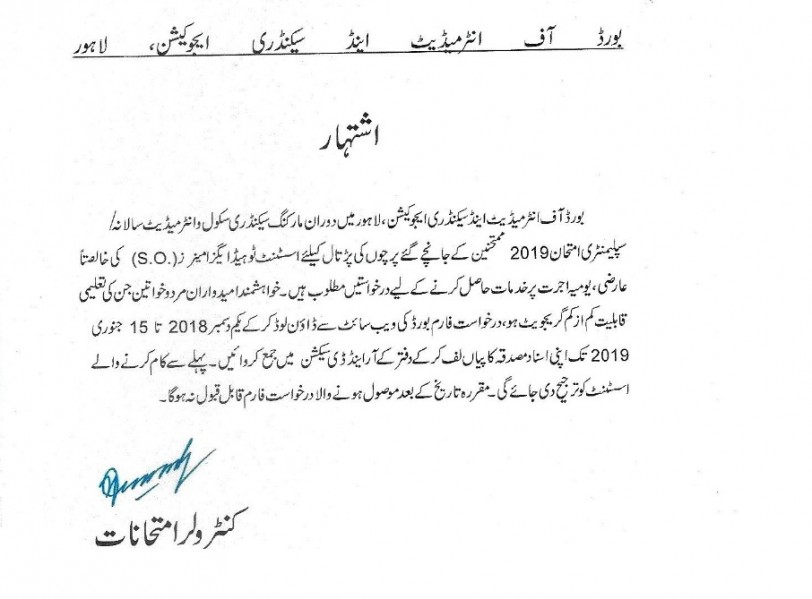 بورڈ آف انٹرمیڈیٹ اینڈ سیکنڈری ایجوکیشن، لاہور
اشتہار
بورڈ آف انٹرمیڈیٹ اینڈ سیکنڈری ایجوکیشن، لاہور میں دوران مارکنگ سیکنڈری سکول و انٹرمیڈیٹ سالانہ/
سپلیمنٹری امتحان 2019 ممتحنین کے جانچے گئے پرچوں کی پڑتال کیلئے اسسٹنٹ ٹو ہیڈ ایگزامینرز (S.O.) کی خالصتاً
عارضی، یومیہ اجرت پر خدمات حاصل کرنے کے لیے درخواستیں مطلوب ہیں۔ خواہشمند امیدواران مرد و خواتین جن کی تعلیمی
قابلیت کم از کم گریجویٹ ہو، درخواست فارم بورڈ کی ویب سائٹ سے ڈاؤن لوڈ کر کے یکم دسمبر 2018 تا 15 جنوری
2019 تک اپنی اسناد مصدقہ کاپیاں لف کر کے دفتر کے آر اینڈ ڈی سیکشن میں جمع کروائیں۔ پہلے سے کام کرنے والے
اسسٹنٹ کو ترجیح دی جائے گی۔ مقررہ تاریخ کے بعد موصول ہونے والا درخواست فارم قابل قبول نہ ہوگا۔
کنٹرولر امتحانات